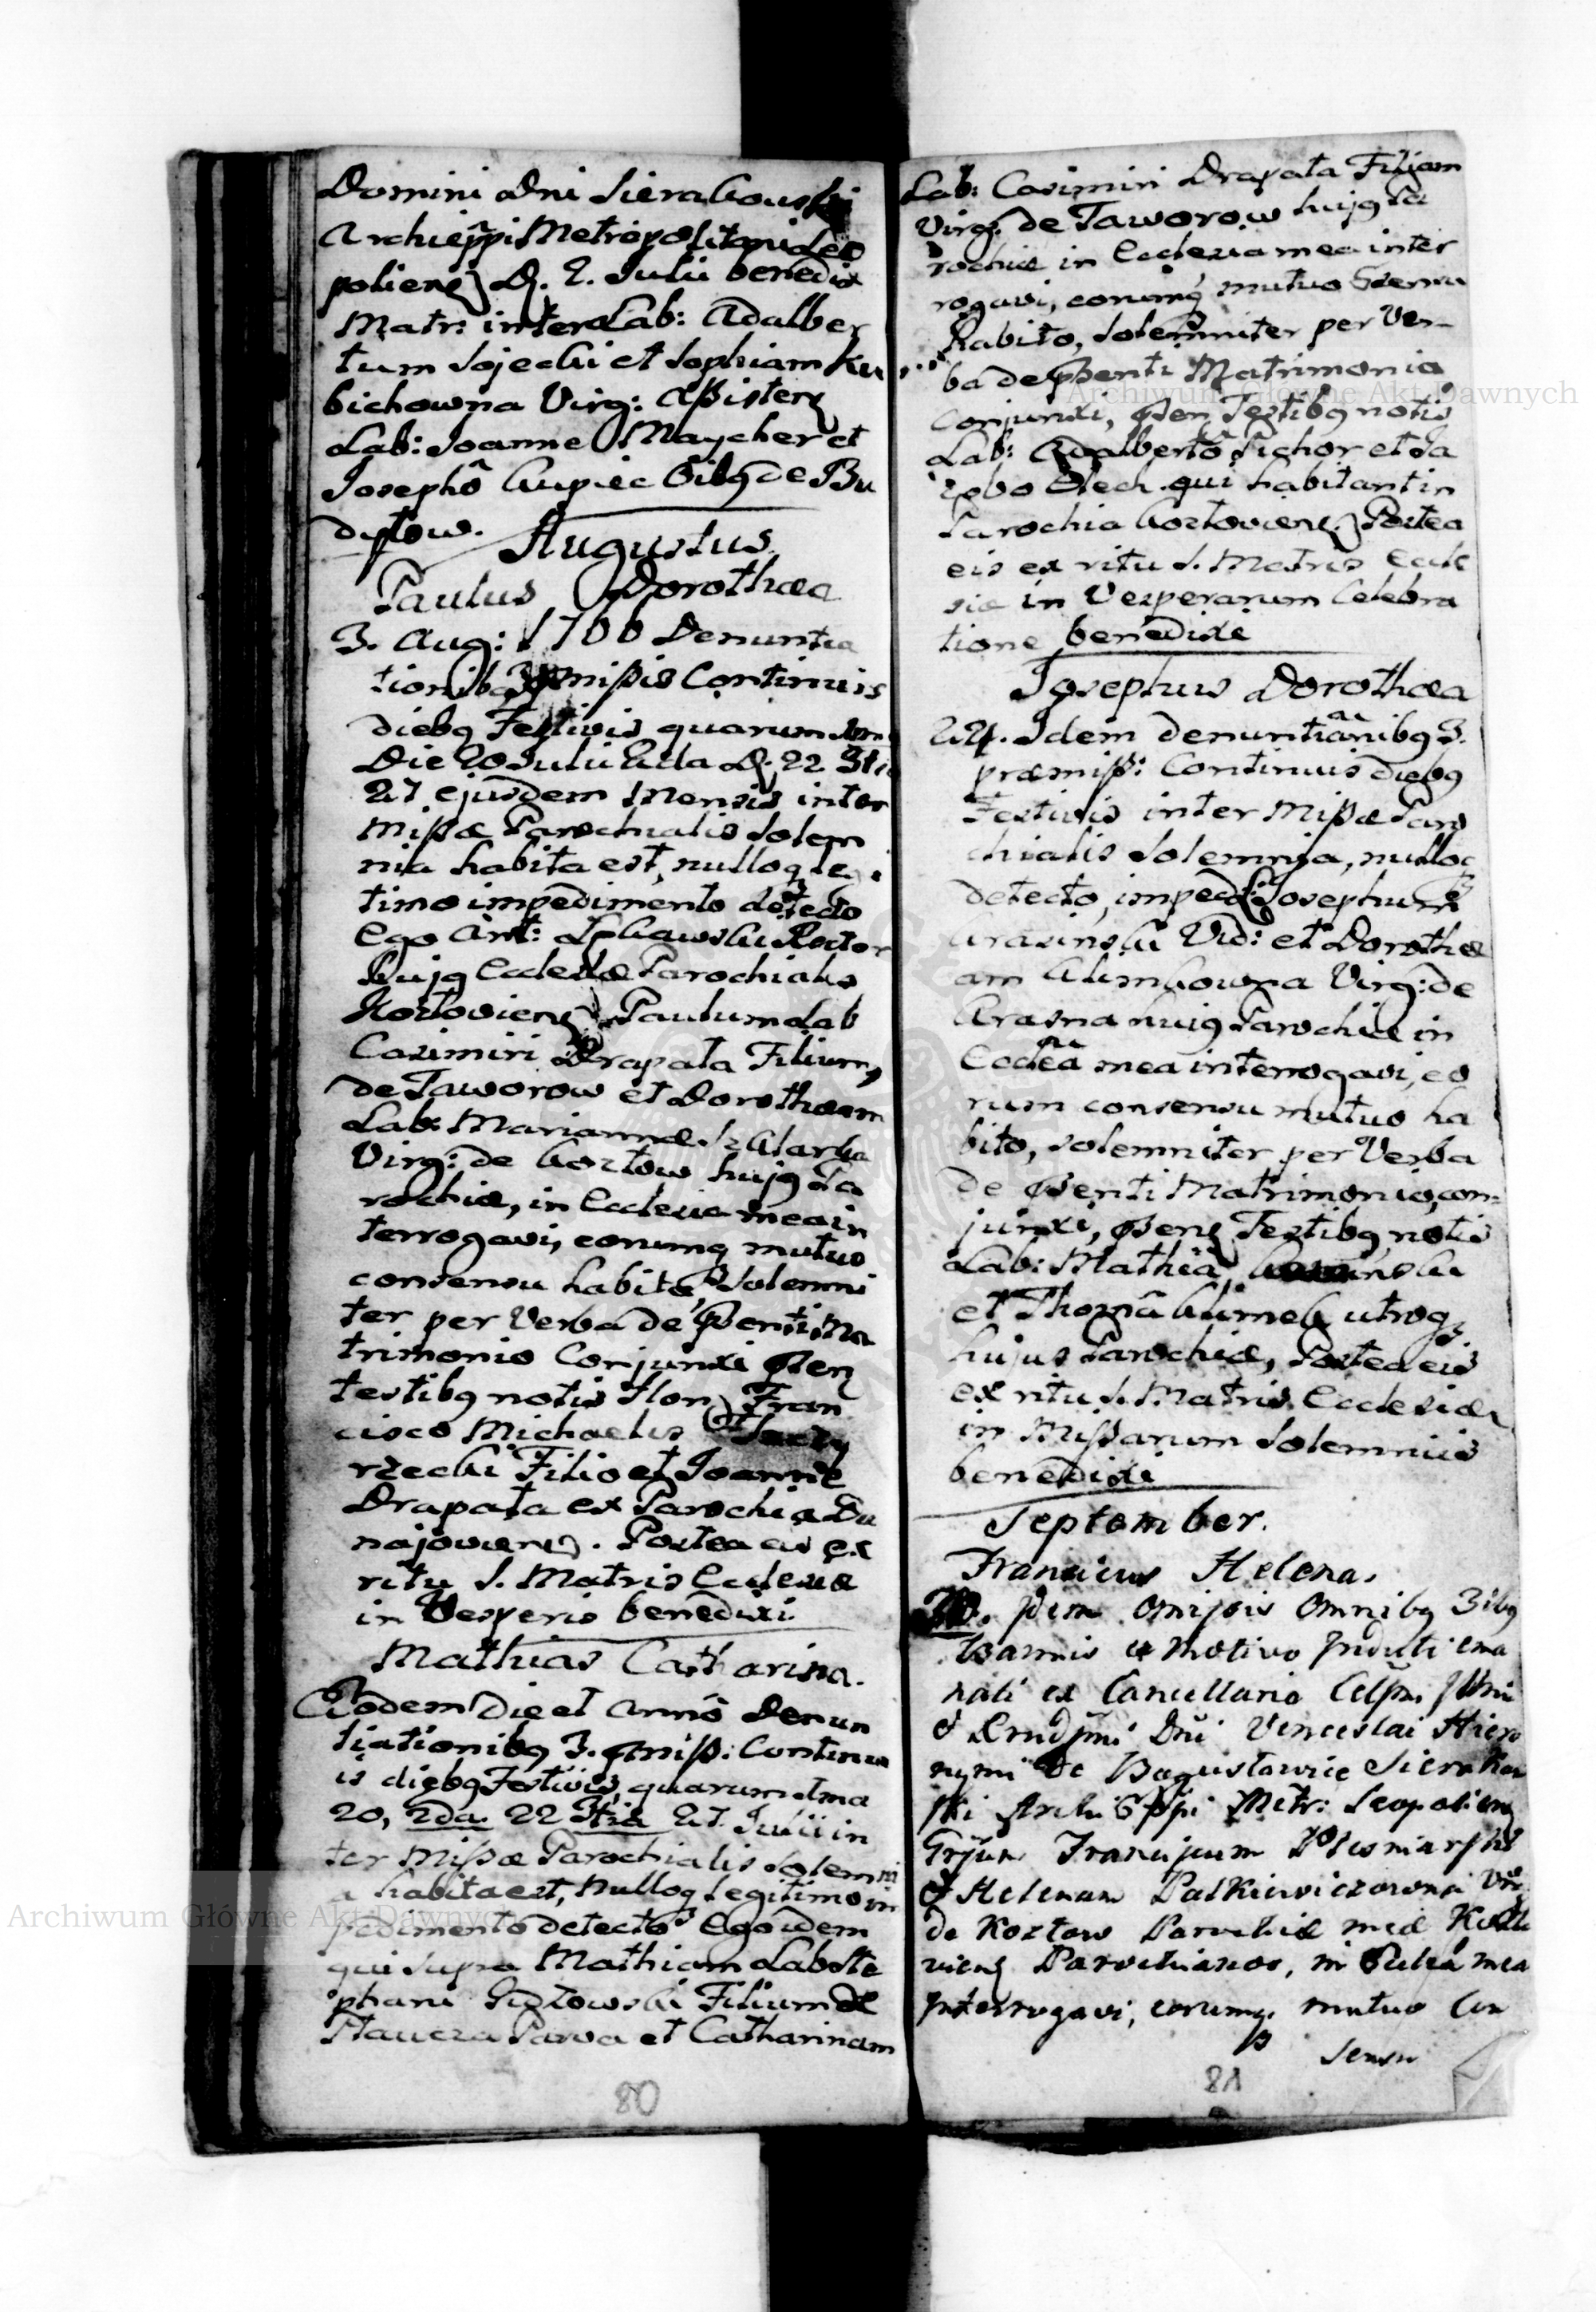 Domini Dni Sierakowski
Archieppi Metropolitani Leo
poliens D. 2. Julii benedix
Matr: inter Lab: Adalber
tum Sojecki et Sophiam Ku
bichowna Virg: Assisten
Lab: Joanne Maycher et
Josephô Kupiec õibq de Bu
dyłow.
Augustus
Paulus Dorothaea
3. Aug: 1766 Denuntia
tionibq 3 pmissis Continuis
diebq Festivis quarum 1ma
Die 20 Julii 2da D. 22 3tia
27 ejusdem Mensis inter
Missæ Parochialis Solem
nia habita est, nulloq legi
timo impedimento detecto
Ego Ant: Rector
hujq Ecclesiæ Parochialis
Kozłoviens Paulum Lab
Casimiri Drapała Filium
de Taworow et Dorotheam
Lab: Mariannæ Szklarka
Virg: de Kozłow hujq Pa
rochiæ, in Ecclesia mea in
terrogavi, eorumq mutuo
consensu habito, Solemni
ter per Verba de psenti Ma
trimonio Conjunxi psen
testibq notis Hon: Fran
cisco Michaelis
rzecki Filio et Joanne
Drapała ex Parochia Du
najoviens. Postea eis ex
ritu S. Matris Ecclesiæ
in Vesperis benedixi.
Mathias Catharina.
Eodem Die et Annô Denun
tiationibq 3. pmiss: Continu
is diebq Festivis, quarum 1ma
20, 2da 22 3tia 27 Julii in
ter Missæ Parochialis Solemni
a habita est, Nulloq legitimo im
pedimento detecto Ego idem
qui Supra Mathiam Lab Ste
phani Gizłowski Filium de
Płaucza Parva et Catharinam
80
Lab: Casimiri Drapała Filiam
Virg. de Taworow hujq Pa
rochiæ in Ecclesia mea inter
rogavi, eorumq mutuo Sensu
habito, Solemniter per Ver-
ba de psenti Matrimonio
Conjunxi, psen Testibq notis
Lab: Adalbertô Sichor et Ja
cobo Olech qui habitant in
Parochia Kozłoviens. Postea
eis ex ritu S. Matris Eccle
siæ in Vesperarum Celebra
tione benedixi
Josephus Dorothæa
24. Idem denuntianibq 3.
præmiss: Continuis diebq
Festivis inter Missæ Paro
chialis Solemnia, nulloq
detecto, imped: Josephum
Krasiński Vid: et Dorothæ
am Klimkowna Virg: de
Krasna hujq Parochiæ in
Ecclea mea interrogavi, eo
rum consensu mutuo ha
bito, solemniter per Verba
de psenti Matrimonio con-
junxi, psens Testibq notis
Lab: Mathiâ
et Thomâ Klimek utroq
hujus Parochiæ, Postea eis
ex ritu S. Matris Ecclesiæ
in Missarum Solemniis
benedixi
September.
Franciscus Helena.
Idem Omissis Omnibq 3ibq
Bannis ex Motivo Indulti ema
nati ex Cancellaria Celsmi Illmi
& Rndssmi Dni Venceslai Hiero
nymi de Bogusławice Sierakow
ski Archi Eppi Metr: Leopoliens
Franciscum
& Helenam Palkiewiczowna Virg
de Kozłow Parochiæ meæ Kozło
viens Parochianos, in Eccleâ mea
Interrogavi, eorumq mutuo Con
sensu
81